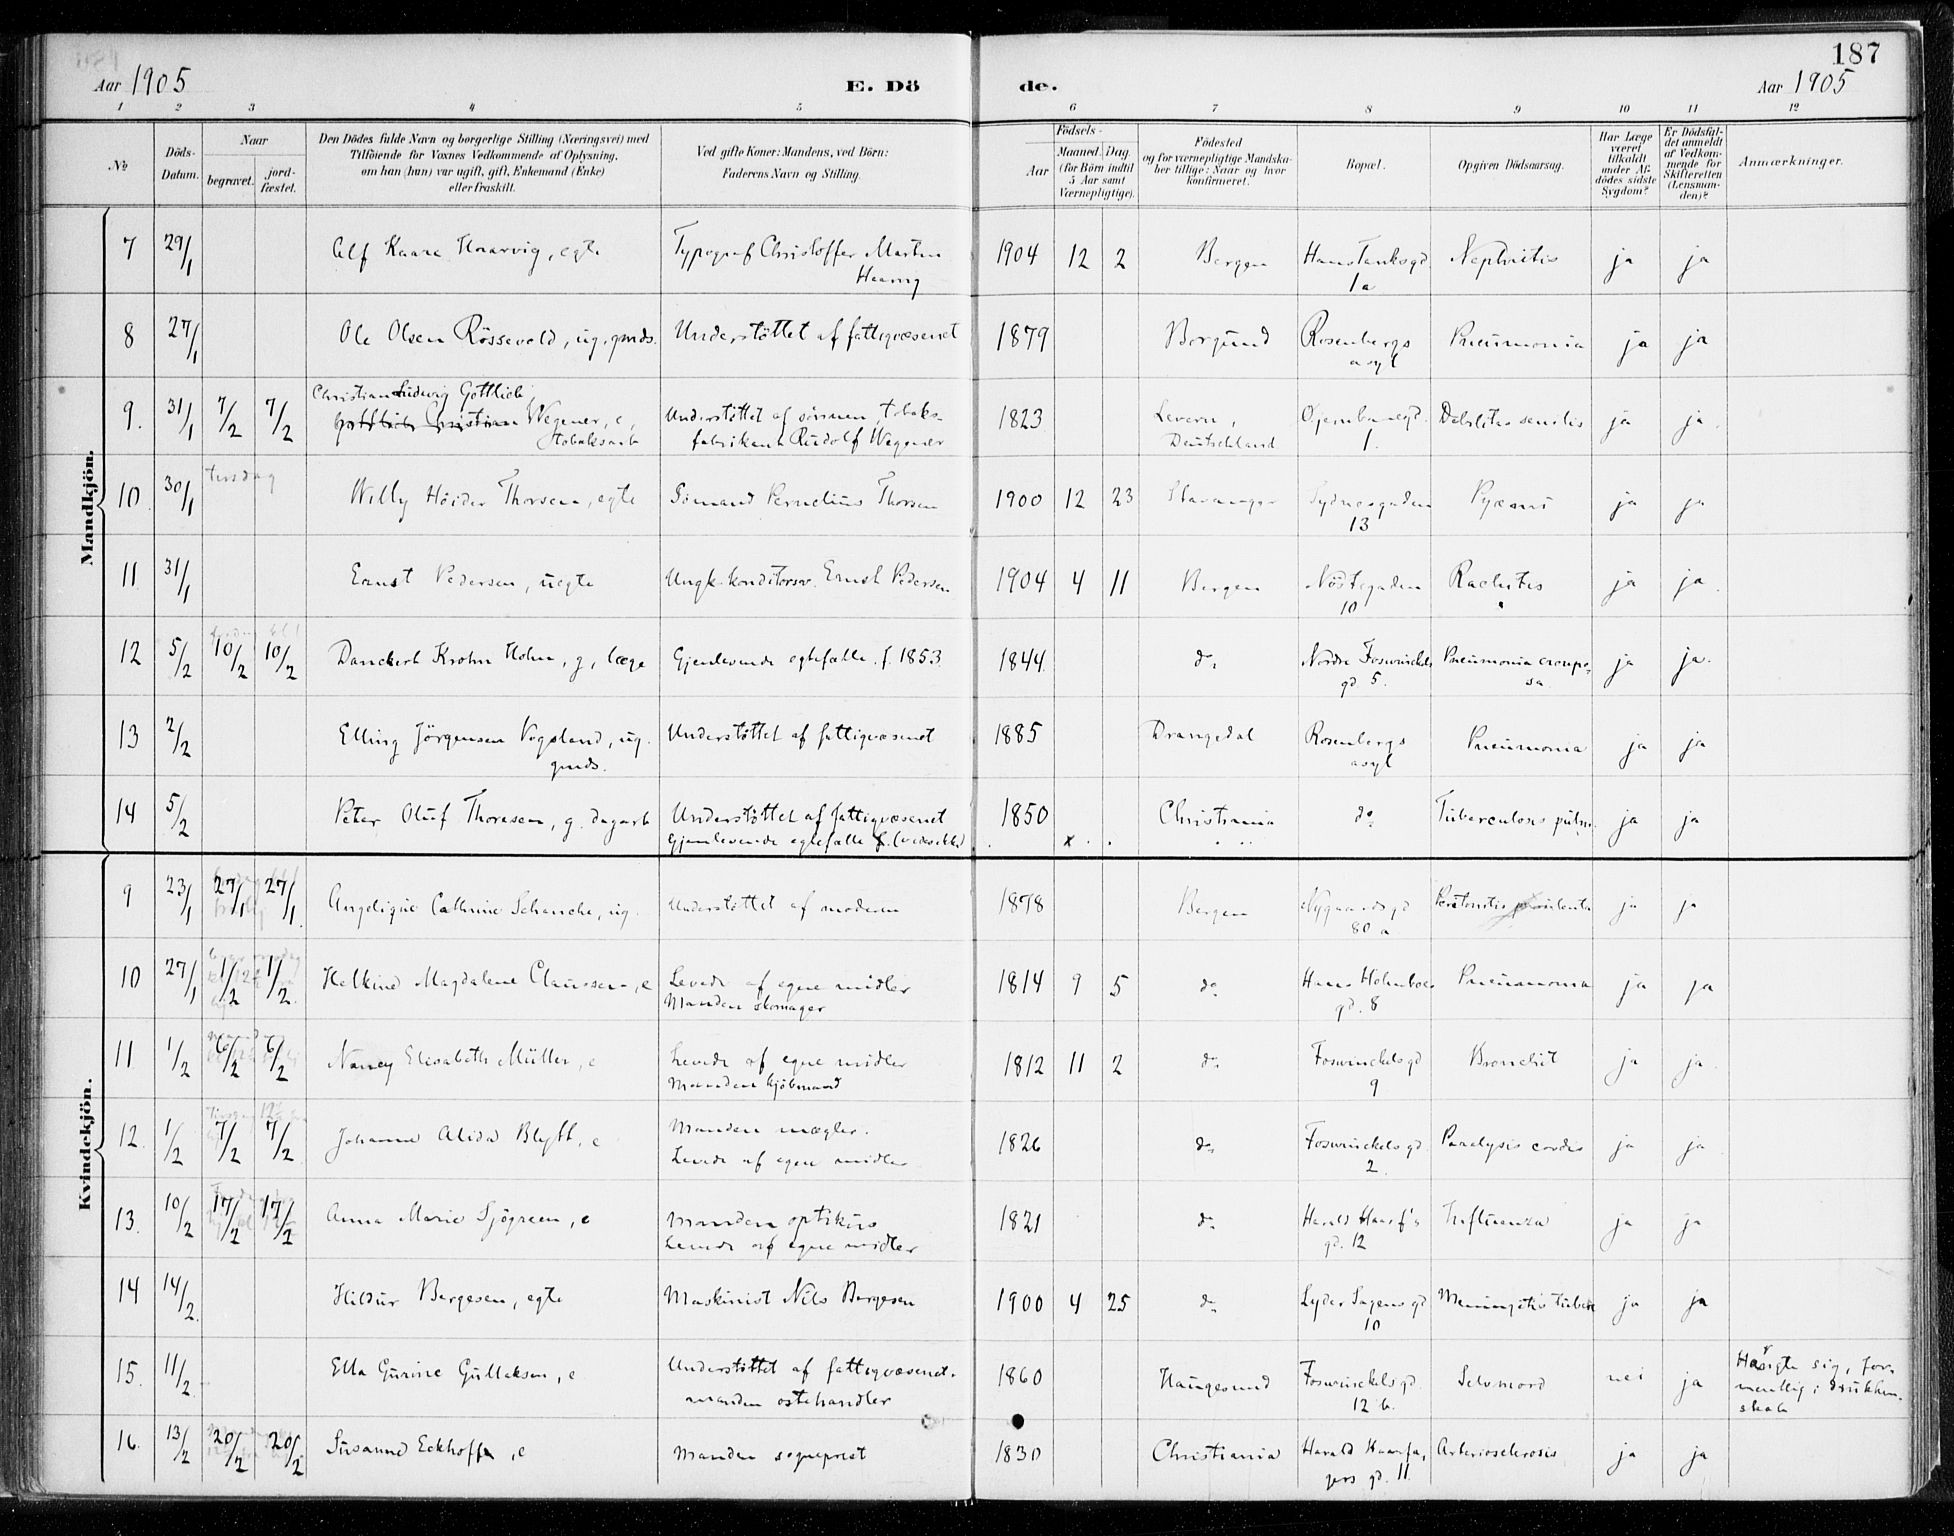 187
Aar 1905
E. Dö
de.
Aar 1905
1 2 3 4 5 6 7 8 9 10 11 12
No
Döds-
Datum.
Naar
begravet.
jord-
fæstet.
Den Dödes fulde Navn og borgerlige Stilling (Næringsvei) med
Tilföiende for Voxnes Vedkommende af Oplysning,
om han (hun) var ugift, gift, Enkemand (Enke)
eller fraskilt.
Ved gifte Koner: Mandens, ved Börn:
Faderens Navn og Stilling.
Födsels-
Aar
Maaned. Dag.
(for Börn indtil
5 Aar samt
Værnepligtige).
Födested
og for værnepligtige Mandska-
ber tillige: Naar og hvor
konfirmeret.
Bopæl.
Opgiven Dödsaarsag.
Har Læge
været
tilkaldt
under Af-
dödes sidste
Sygdom?
Er Dödsfal-
det anmeldt
af Vedkom-
mende for
Skifteretten
(Lensman-
den)?
Anmærkninger.
Mandkjön.
7 29/1 Alf Kaare Haarvig, egte Typograf Christoffer Martin 1904 12 2 Bergen Hans Tanksgd. Nephritis ja ja
Haarvig 1a
8 27/1 Ole Olsen Rössevold, ug. gmds. Understöttet af fattigvæsenet 1879 Borgund Rosenbergs Pneumonia ja ja
asyl
Christian Ludwig Gottlieb
9. 31/1 7/2 7/2 Gottlieb Christian Wegener, e, Understöttet af sönnen, tobaks- 1823 Levern, Debilitas senilis ja ja.
tobaksarb fabrikant Rudolf Wegener Deutschland 1.
10 30/1 tirsdag Willy Höider Thorsen, egte Sömand Pernelius Thorsen 1900 12 23 Stavanger Sydnesgaden Pyæmi ja ja
13
11 31/1 Ernst Pedersen, uegte Ungk. konditorsv. Ernst Pedersen 1904 4 11 Bergen Nöstegaden Rachitis ja ja.
10
12 5/2 10/2 10/2 Danckert Krohn Holm, g, læge Gjenlevende egtefælle f. 1853. 1844. do. Nordre Foswinckels Pneumonia croupo- ja ja.
gd. 5. sa
13 2/2 Elling Jörgensen Vogsland, ug. Understöttet af fattigvæsenet 1885 Drangedal Rosenbergs Pneumonia ja ja
gmds. asyl
14 5/2 Peter Oluf Thoresen, g. dagarb Understöttet af fattigvæsenet 1850 Christiania do Tuberculosis pulm. ja ja
Gjenlevende egtefælle f. (vides ikke)
Kvindekjön.
9 23/1 27/1 27/1 Angelique Cathrine Schanche, ug. Understöttet af moderen 1878 Bergen Nygaardsgd Peritonitis purulenta ja ja
80 a
10 27/1 1/2 1/2 Helkine Magdalene Claussen, e Levede af egne midler 1814 9 5 do Hans Holmboes Pneumonia ja ja
Manden skomager gd. 8
11 1/2 6/2 6/2 Nancy Elisabeth Müller, e Levede af egne midler 1812 11 2 do Foswinckelsgd Bronchit ja ja.
Manden kjöbmand 9
12. 1/2 7/2 7/2 Johanne Alida Blytt, e Manden mægler. 1826 do. Foswinckelsgd. Paralysis cordis ja ja
Levede af egne midler 2.
13. 10/2 17/2 17/2 Anna Marie Sjögreen, e Manden optikus 1821 do Harald Haarf's Influenza ja ja
Levede af egne midler gd. 12
14 14/2. Hildur Bergesen, egte Maskinist Nils Bergesen 1900 4 25 do Lyder Sagens gd Meningitis tuberc ja ja
10
15. 11/2. Ella Gurine Gullaksen, e Understöttet af fattigvæsenet. 1860 Haugesund Foswinckelsgd. Selvmord nei ja Hængte sig, for-
manden ostehandler 12 b. mentlig i drukken-
skab
16. 13/2 20/2 20/2 Susanne Eckhoff, e Manden sogneprest 1830 Christiania Harald Haarfa- Arteriosclerosis ja ja
gers gd. 11